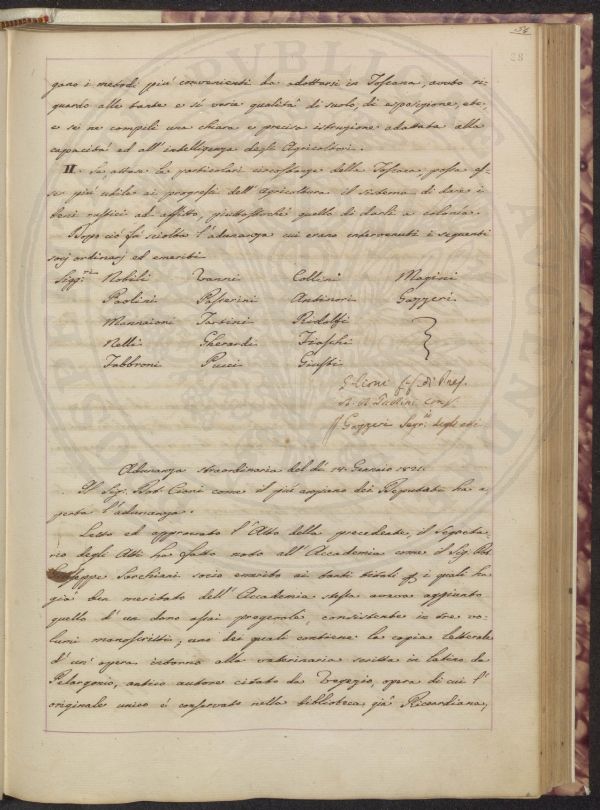 54
28
gano i metodi piú convenienti da adottarsi in Toscana, avuto ri-
guardo alle tante e sí varia qualitá di suolo, di esposizione, etc.
e se ne compili una chiara e precisa istruzione adattata alla
capacitá ed all'intelligenza degli Agricoltori.
II. Se, attese le particolari circostanze della Toscana, possa es-
ser piú utile ai progressi dell'Agricoltura il sistema di dare i
beni rustici ad affitto, piuttostoché quello di darli a colonía.
Dopo ció fú sciolta l'adunanza cui erano intervenuti i seguenti
socj ordinarj ed emeriti
Sigg.ri Nobili Vanni Collini Magini
Paolini Passerini Antinori Gazzeri
Mannaioni Tartini Ridolfi
Nelli Gherardi Fraschi
Fabbroni Pucci Giusti
Cioni ff. di Pres.
Gazzeri Segr.io degli atti
Adunanza straordinaria del dí 14. Gennaio 1821.
Il Sig. Dott. Cioni come il piú anziano dei Deputati ha a-
perta l'adunanza.
Letto ed approvato l'Atto della precedente, il Segreta-
rio degli Atti ha fatto noto all'Accademia come il Sig. Dott.
Giuseppe Sarchiani socio emerito ai tanti titoli p i quali ha
giá ben meritato dell'Accademia stessa aveva aggiunto
quello d'un dono assai pregevole, consistente in tre vo-
lumi manoscritti; uno dei quali contiene la copia letterale
d'un'opera intorno alla veterinaria scritta in latino da
Pelagonio, antico autore citato da Vegezio, opera di cui l'
originale unico é conservato nella biblioteca, giá Riccardiana,